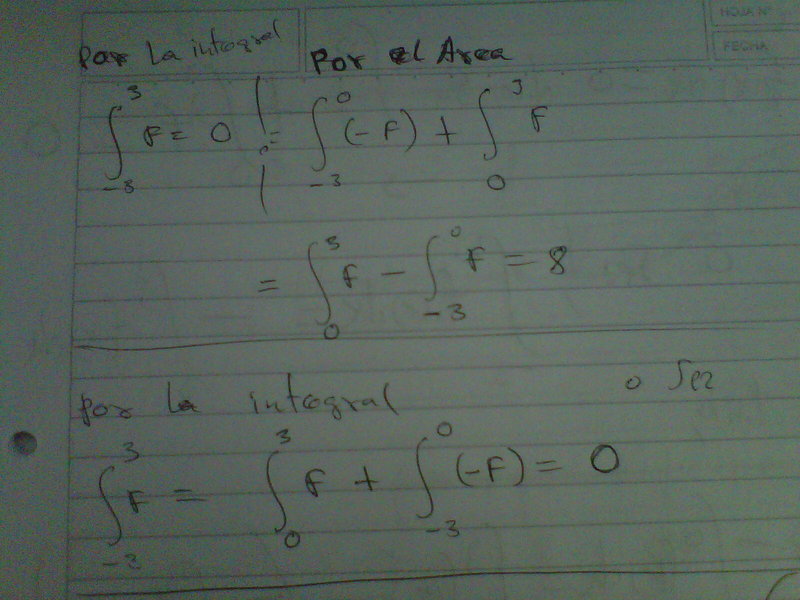 HOJA Nº
FECHA
Por La integral Por el Area
∫_{-3}^{3} F = 0 = ∫_{-3}^{0} (-F) + ∫_{0}^{3} F
= ∫_{0}^{3} F - ∫_{-3}^{0} F = 8
por la integral o Sea
∫_{-3}^{3} F = ∫_{0}^{3} F + ∫_{-3}^{0} (-F) = 0